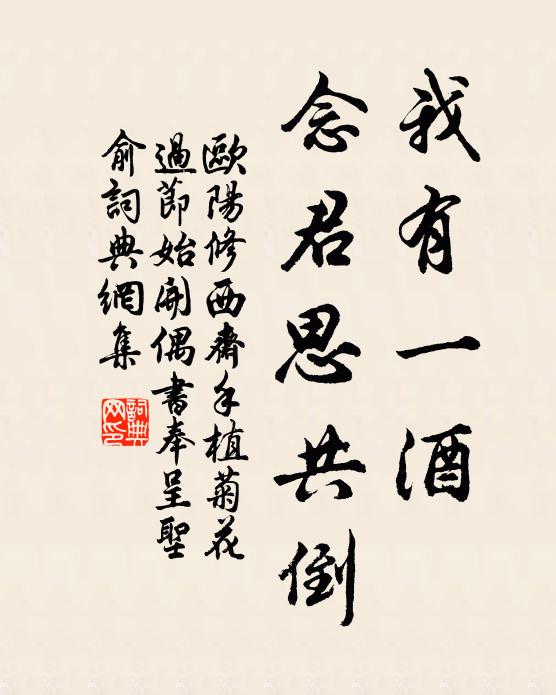 我有一酒
念君思共倒
歐陽修西齋手植菊花
過節始開偶書奉呈聖
俞詞典網集
詞典網印